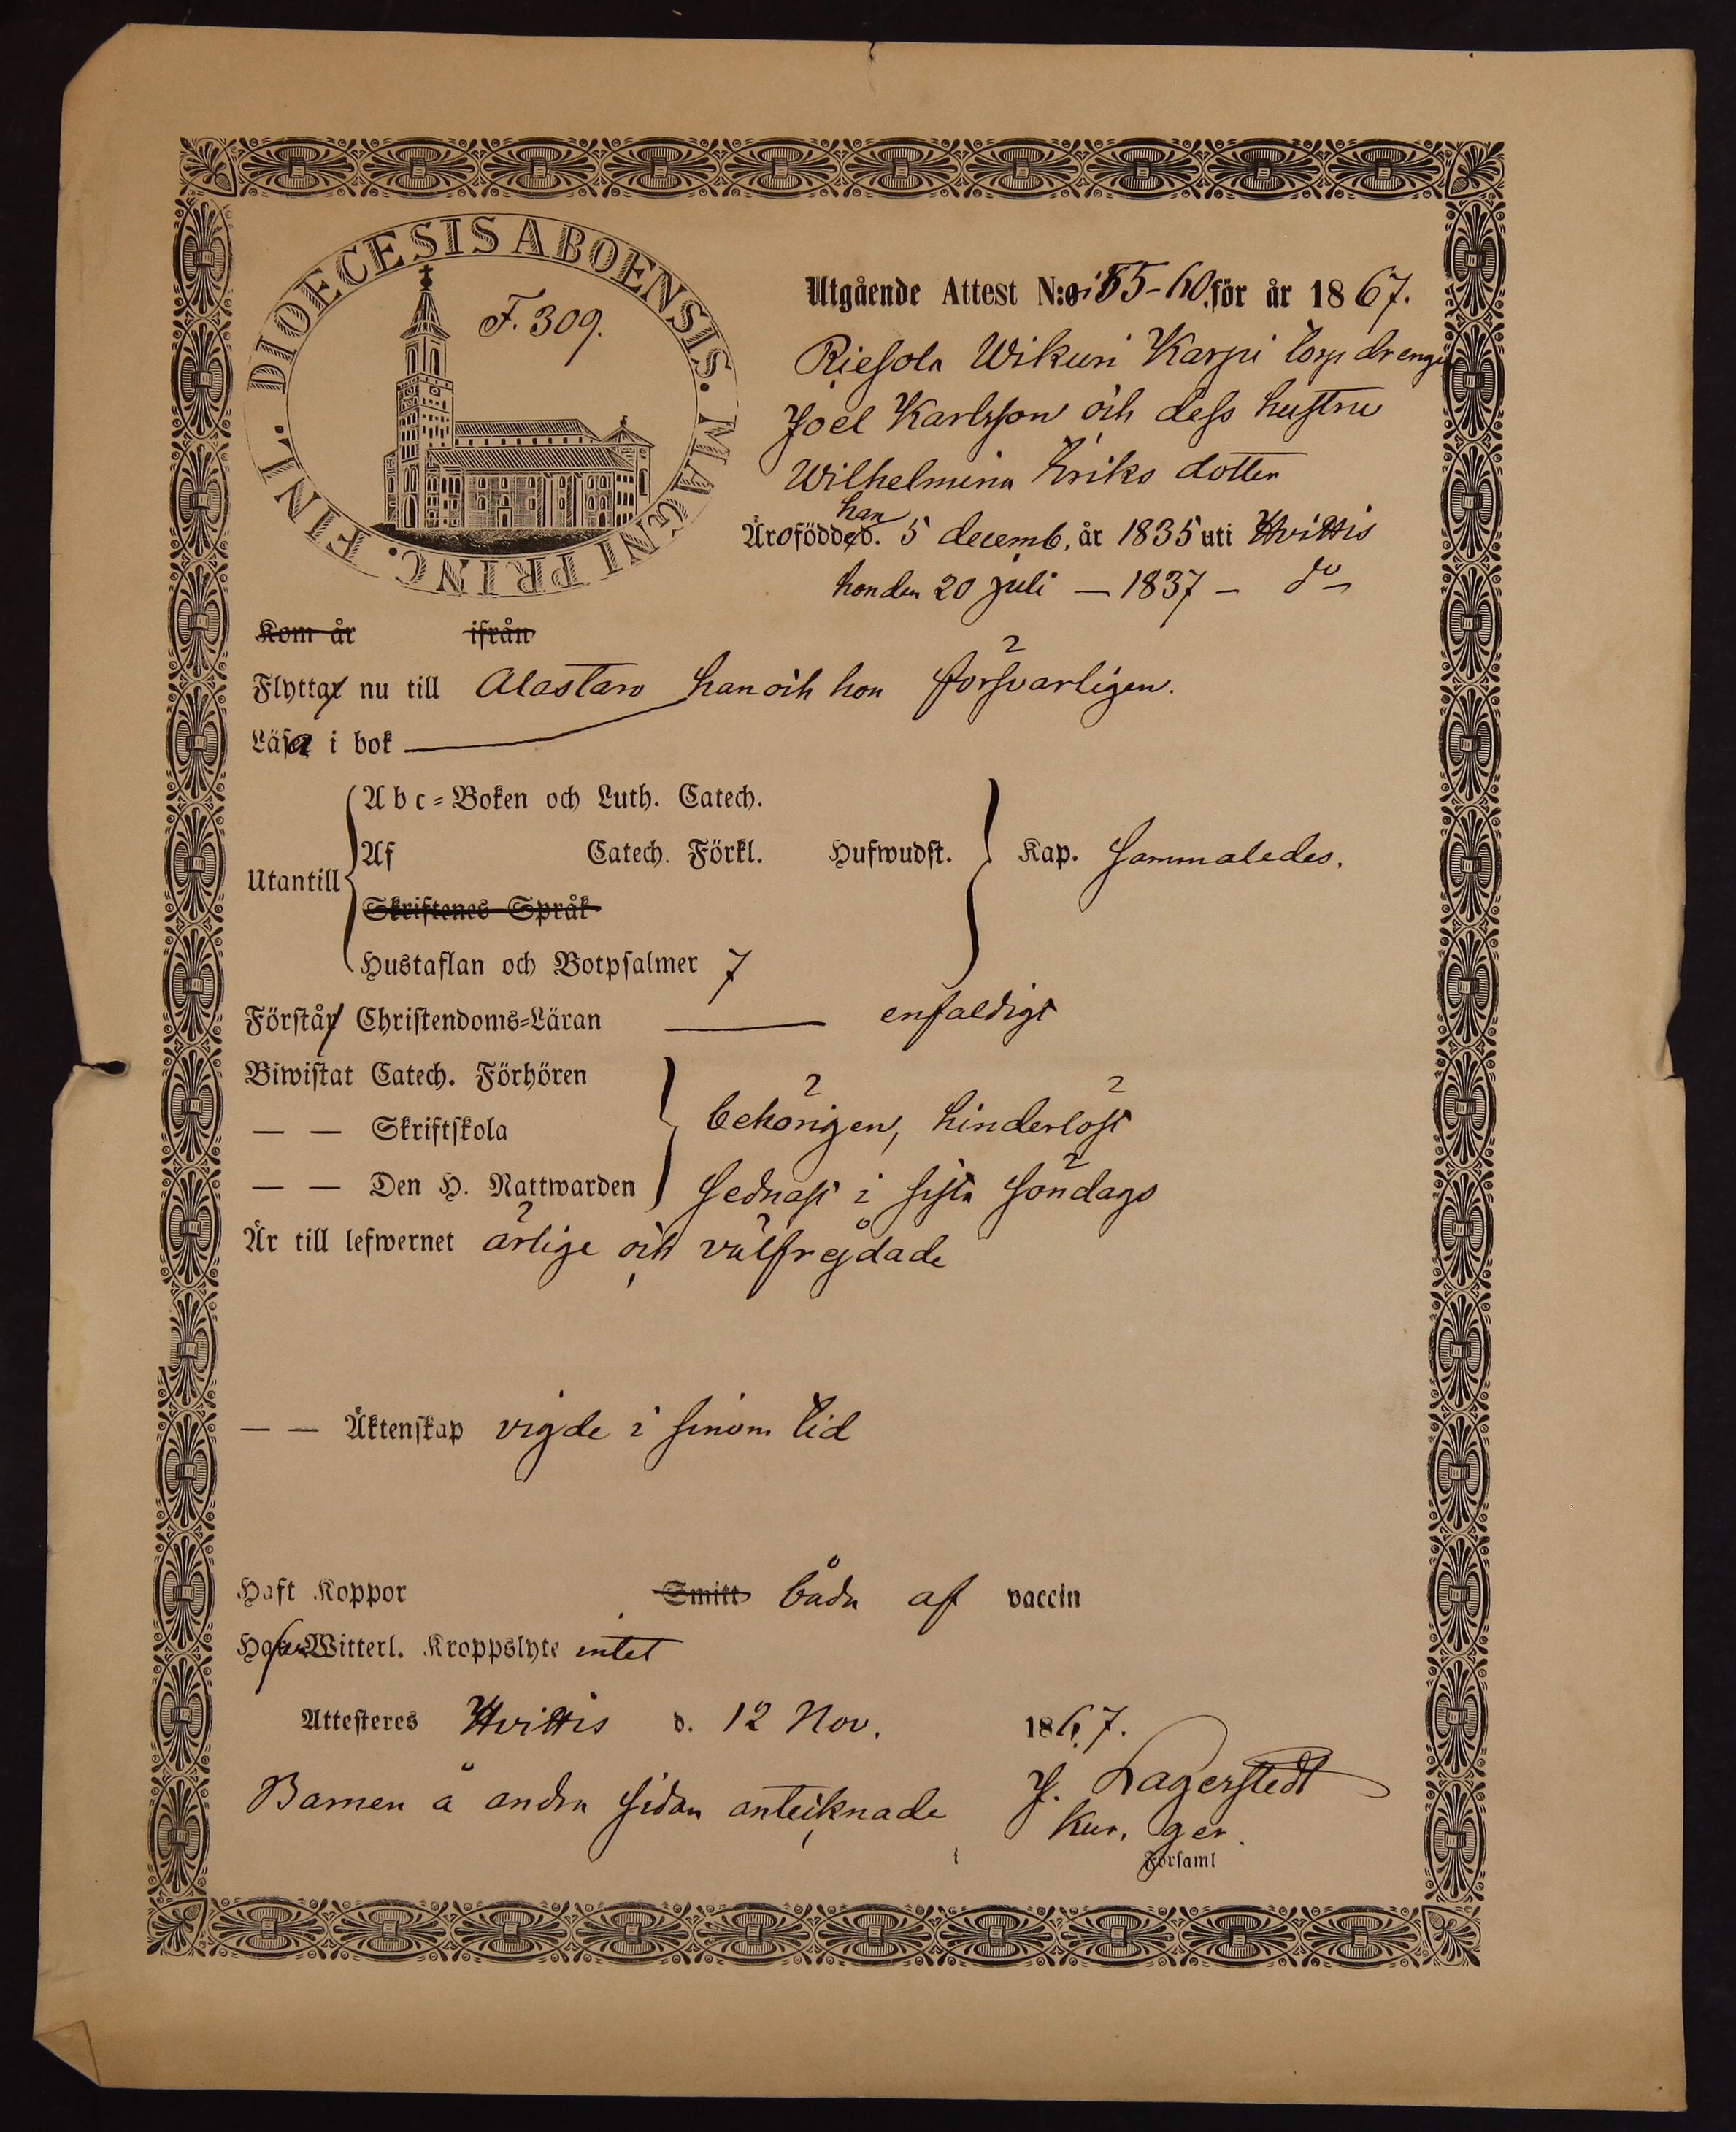 DIOECESIS ABOENSIS. MAGNI PRINC. FINL.
F. 309.
Utgående Attest N:o 155-60 för år 1867.
Wikuri Karpi torp drengen
Joel Karlsson och dess hustru
Wilhelmina Eriks dotter
Äro födde han d. 5 decemb. år 1835 uti Hvittis
hon den 20 juli — 1837 — do
Kom år ifrån
Flytta nu till Alastaro han och hon försvarligen.
Läsa i bok
Abc-Boken och Luth. Catech.
Utantill Af Catech. Förkl. Hufwudst. Kap. sammaledes.
Skriftenes Språk
Hustaflan och Botpsalmer 7
Förstå Christendoms-Läran — enfaldigt
Biwistat Catech. Förhören
— — Skriftskola behörigen, hinderlöst
— — Den H. Nattwarden sednast i sista söndags
Är till lefwernet ärlige och välfrejdade
— — Äktenskap vigde i sinom tid
Haft Koppor Smitt båda af vaccin
Hafva Witterl. Kroppslyte intet
Attesteres Hvittis d. 12 Nov. 1867.
Barnen å andra sidan antecknade J. Lagerstedt
Kur. ger.
Församl